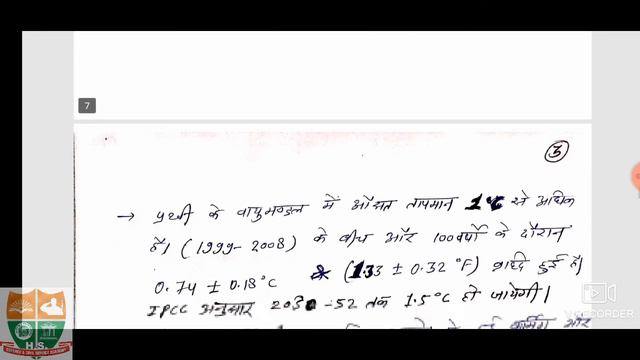 7
3
→ पृथ्वी के वायुमण्डल में औसत तापमान 1°C से अधिक
है। (1999-2008) के बीच और 100 वर्षो के दौरान
0.74 ± 0.18°C (1.33 ± 0.32 °F) वृद्धि हुई है।
IPCC अनुसार 2030-52 तक 1.5°C हो जायेगी।
और
H.S.
RECORDER